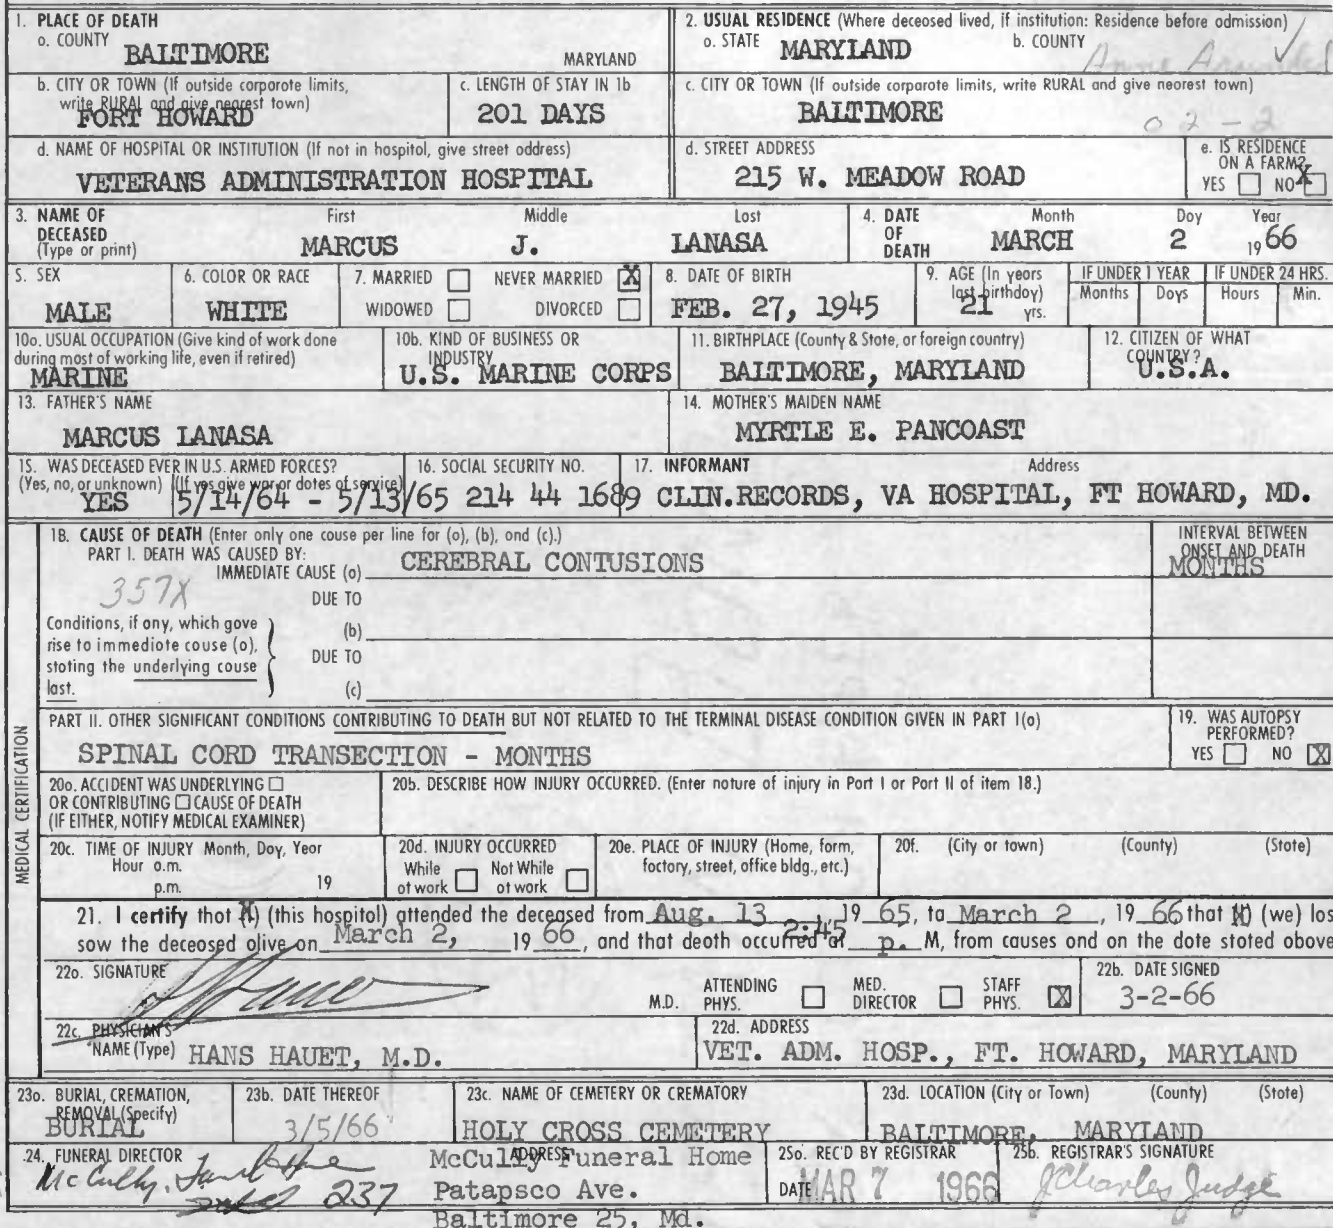 1. PLACE OF DEATH
a. COUNTY BALTIMORE MARYLAND
2. USUAL RESIDENCE (Where deceased lived, if institution: Residence before admission)
a. STATE MARYLAND b. COUNTY Anne Arundel
b. CITY OR TOWN (If outside corporate limits, write RURAL and give nearest town)
FORT HOWARD
c. LENGTH OF STAY IN 1b
201 DAYS
c. CITY OR TOWN (If outside corporate limits, write RURAL and give nearest town)
BALTIMORE
02-2
d. NAME OF HOSPITAL OR INSTITUTION (If not in hospital, give street address)
VETERANS ADMINISTRATION HOSPITAL
d. STREET ADDRESS
215 W. MEADOW ROAD
e. IS RESIDENCE ON A FARM?
YES NO X
3. NAME OF DECEASED (Type or print)
First Middle Last
MARCUS J. LANASA
4. DATE OF DEATH
Month Day Year
MARCH 2 1966
5. SEX
MALE
6. COLOR OR RACE
WHITE
7. MARRIED NEVER MARRIED X
WIDOWED DIVORCED
8. DATE OF BIRTH
FEB. 27, 1945
9. AGE (In years last birthday)
21 yrs.
IF UNDER 1 YEAR
Months Days
IF UNDER 24 HRS.
Hours Min.
10a. USUAL OCCUPATION (Give kind of work done during most of working life, even if retired)
MARINE
10b. KIND OF BUSINESS OR INDUSTRY
U.S. MARINE CORPS
11. BIRTHPLACE (County & State, or foreign country)
BALTIMORE, MARYLAND
12. CITIZEN OF WHAT COUNTRY?
U.S.A.
13. FATHER'S NAME
MARCUS LANASA
14. MOTHER'S MAIDEN NAME
MYRTLE E. PANCOAST
15. WAS DECEASED EVER IN U.S. ARMED FORCES?
(Yes, no, or unknown) (If yes give war or dates of service)
YES 5/14/64 - 5/13/65
16. SOCIAL SECURITY NO.
214 44 1689
17. INFORMANT Address
CLIN.RECORDS, VA HOSPITAL, FT HOWARD, MD.
MEDICAL CERTIFICATION
18. CAUSE OF DEATH (Enter only one cause per line for (a), (b), and (c).)
PART I. DEATH WAS CAUSED BY:
IMMEDIATE CAUSE (a) CEREBRAL CONTUSIONS
INTERVAL BETWEEN ONSET AND DEATH
MONTHS
357X
DUE TO
Conditions, if any, which gave rise to immediate cause (a), stating the underlying cause last.
(b)
DUE TO
(c)
PART II. OTHER SIGNIFICANT CONDITIONS CONTRIBUTING TO DEATH BUT NOT RELATED TO THE TERMINAL DISEASE CONDITION GIVEN IN PART I(a)
SPINAL CORD TRANSECTION - MONTHS
19. WAS AUTOPSY PERFORMED?
YES NO X
20a. ACCIDENT WAS UNDERLYING
OR CONTRIBUTING CAUSE OF DEATH
(IF EITHER, NOTIFY MEDICAL EXAMINER)
20b. DESCRIBE HOW INJURY OCCURRED. (Enter nature of injury in Part I or Part II of item 18.)
20c. TIME OF INJURY Month, Day, Year
Hour a.m.
p.m. 19
20d. INJURY OCCURRED
While at work Not While at work
20e. PLACE OF INJURY (Home, farm, factory, street, office bldg., etc.)
20f. (City or town) (County) (State)
21. I certify that (X) (this hospital) attended the deceased from Aug. 13, 19 65, to March 2, 19 66 that (X) (we) las
saw the deceased alive on March 2, 19 66, and that death occurred at 2:45 p. M, from causes and on the date stated above
22a. SIGNATURE
M.D. ATTENDING PHYS. MED. DIRECTOR STAFF PHYS. X
22b. DATE SIGNED
3-2-66
22c. PHYSICIAN'S NAME (Type) HANS HAUET, M.D.
22d. ADDRESS
VET. ADM. HOSP., FT. HOWARD, MARYLAND
23a. BURIAL, CREMATION, REMOVAL (Specify)
BURIAL
23b. DATE THEREOF
3/5/66
23c. NAME OF CEMETERY OR CREMATORY
HOLY CROSS CEMETERY
23d. LOCATION (City or Town) (County) (State)
BALTIMORE, MARYLAND
24. FUNERAL DIRECTOR
McCully, 237
ADDRESS
McCully Funeral Home
Patapsco Ave.
Baltimore 25, Md.
25a. REC'D BY REGISTRAR
DATE MAR 7 1966
25b. REGISTRAR'S SIGNATURE
J Charles Judge